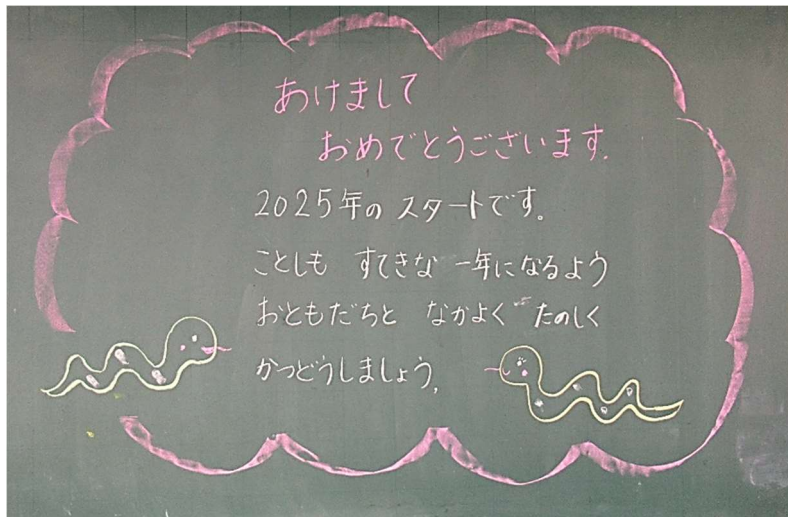 あけまして
おめでとうございます。
2025年の スタートです。
ことしも すてきな 一年になるよう
おともだちと なかよく たのしく
かつどうしましょう。